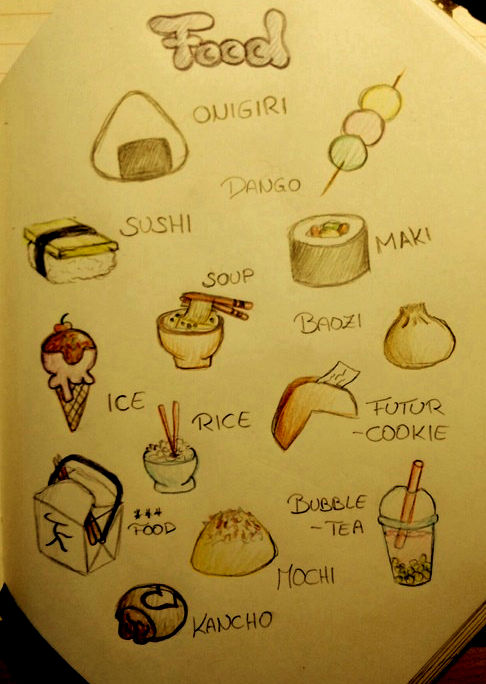 Food
ONIGIRI
DANGO
SUSHI
MAKI
SOUP
BAOZI
ICE
RICE
FUTUR
-COOKIE
***
FOOD
BUBBLE
-TEA
MOCHI
KANCHO